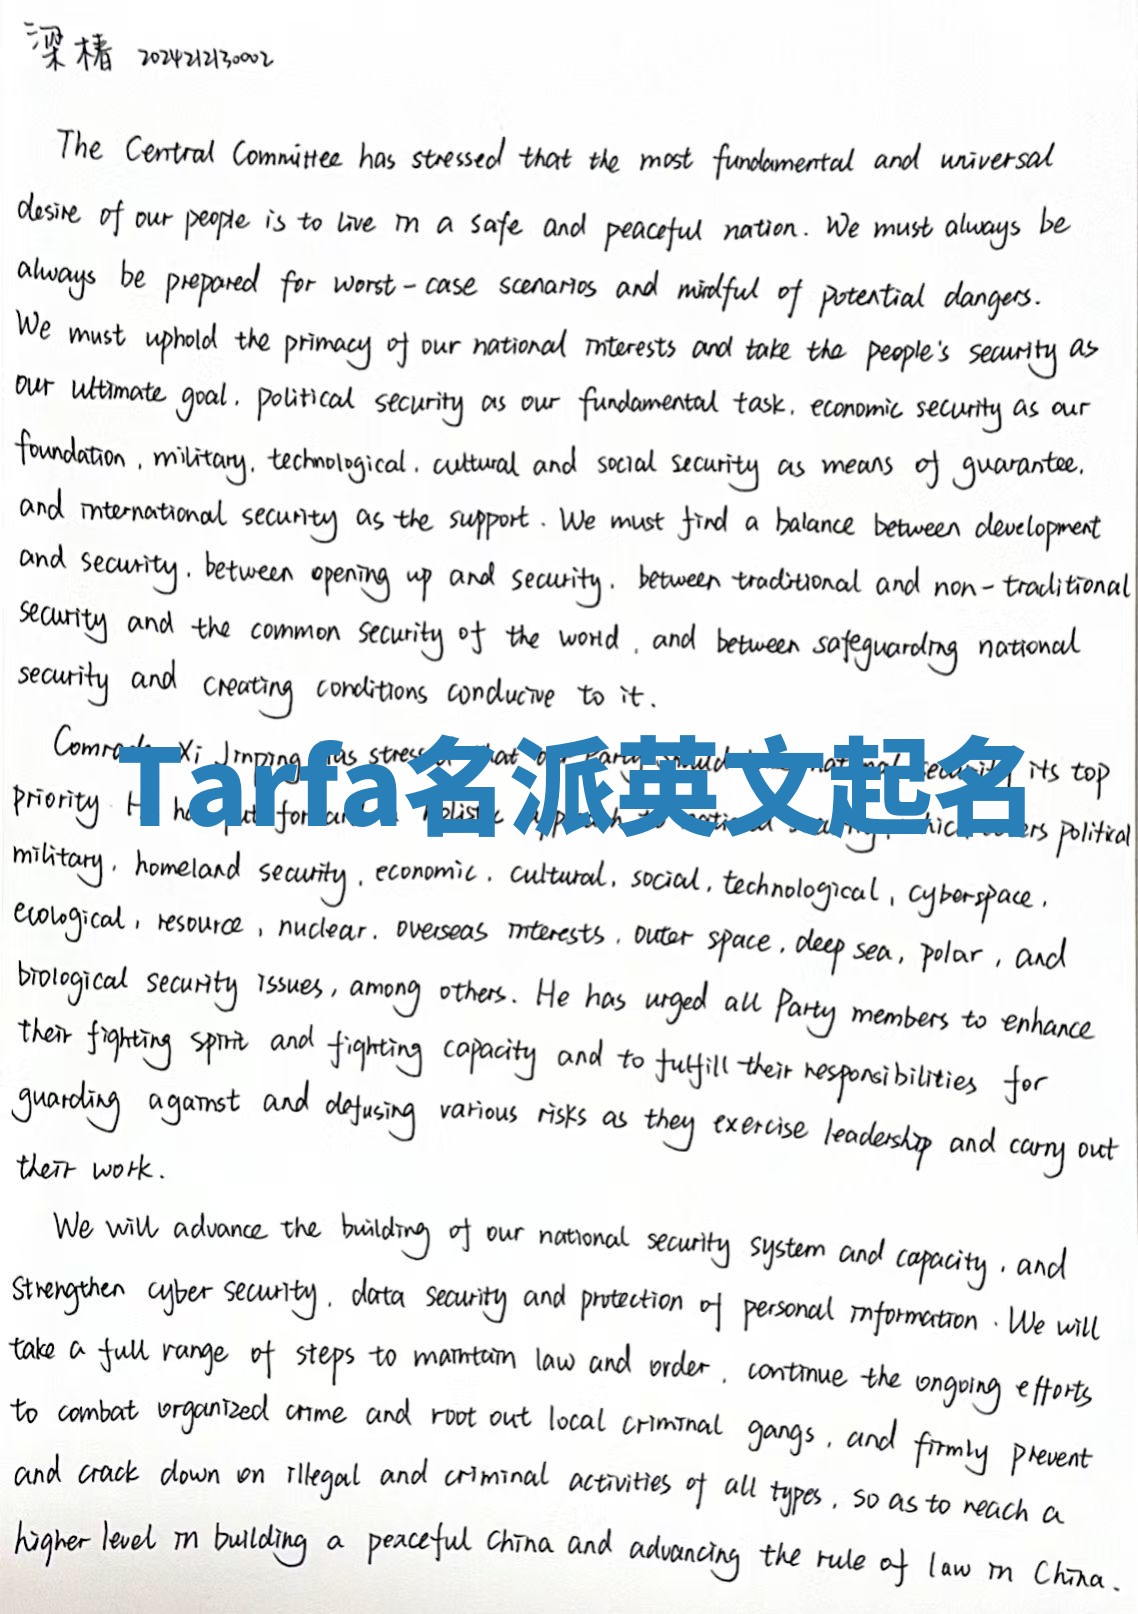 梁椿 2024212130002
The Central Committee has stressed that the most fundamental and universal
desire of our people is to live in a safe and peaceful nation. We must always be
always be prepared for worst-case scenarios and mindful of potential dangers.
We must uphold the primacy of our national interests and take the people's security as
our ultimate goal, political security as our fundamental task, economic security as our
foundation, military, technological, cultural and social security as means of guarantee,
and international security as the support. We must find a balance between development
and security, between opening up and security, between traditional and non-traditional
security and the common security of the world, and between safeguarding national
security and creating conditions conducive to it.
Comrade Xi Jinping has stressed that our Party should national security its top
Tarfa名派英文起名
priority. He has put forward holistic approach to national security, which covers political
military, homeland security, economic, cultural, social, technological, cyberspace,
ecological, resource, nuclear, overseas interests, outer space, deep sea, polar, and
biological security issues, among others. He has urged all Party members to enhance
their fighting spirit and fighting capacity and to fulfill their responsibilities for
guarding against and defusing various risks as they exercise leadership and carry out
their work.
We will advance the building of our national security system and capacity, and
strengthen cyber security, data security and protection of personal information. We will
take a full range of steps to maintain law and order, continue the ongoing efforts
to combat organized crime and root out local criminal gangs, and firmly prevent
and crack down on illegal and criminal activities of all types, so as to reach a
higher level in building a peaceful China and advancing the rule of law in China.